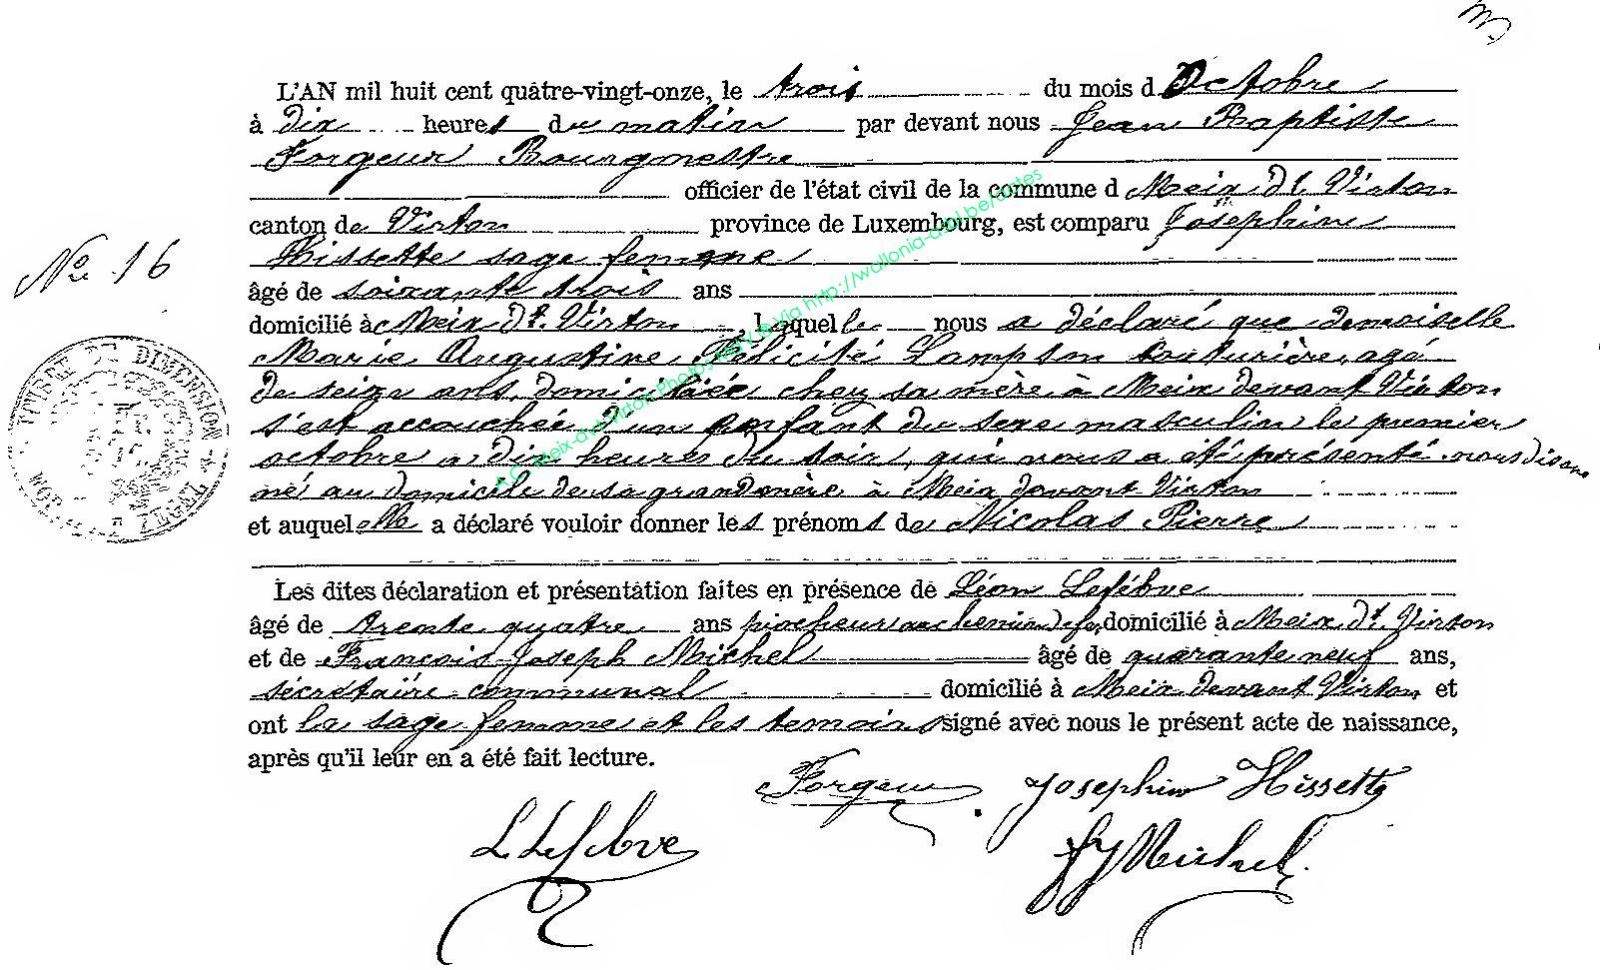 L'AN mil huit cent quatre-vingt-onze, le trois du mois d Octobre
à dix heures du matin par devant nous Jean Baptiste
Forgeur Bourgmestre
officier de l'état civil de la commune d Meix dt. Virton
canton de Virton province de Luxembourg, est comparu Josephine
No 16
Hissette sage femme
âgé de soixante trois ans
domicilié à Meix dt. Virton, laquelle nous a déclaré que demoiselle
Marie Augustine Félicité Lampson couturière, agé
de seize ans, domiciliée chez sa mère à Meix devant Virton
s'est accouchée d'un enfant du sexe masculin le premier
octobre a dix heures du soir, qui nous a été présenté nous disons
né au domicile de sa grandmère à Meix devant Virton
et auquel elle a déclaré vouloir donner les prénoms de Nicolas Pierre
Les dites déclaration et présentation faites en présence de Léon Lefébvre
âgé de trente quatre ans piocheur au chemin d fer, domicilié à Meix dt. Virton
et de François Joseph Michel âgé de quarante neuf ans,
sécrétaire communal domicilié à Meix devant Virton et
ont la sage femme et les temoins signé avec nous le présent acte de naissance,
après qu'il leur en a été fait lecture.
Forgeur Josephine Hissette
L Lefebvre FJ Michel